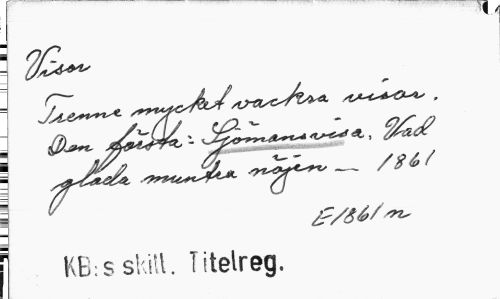 Visor
Trenne mycket vackra visor.
Den första: Sjömansvisa. Vad
glada muntra nöjen — 1861
E1861 n
KB:s skill. Titelreg.